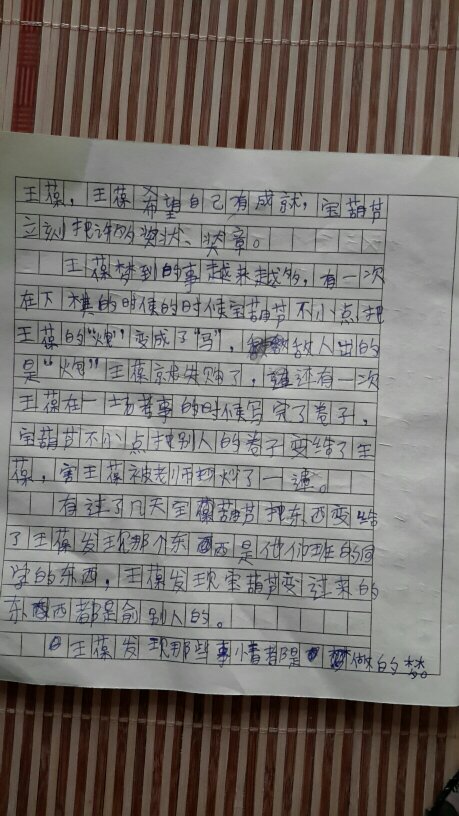 王葆，王葆又希望自己有成就，宝葫芦
立刻把许多奖状、奖章。
王葆梦到的事越来越多，有一次
在下棋的时侯的时侯宝葫芦不小点把
王葆的“炮”变成了“马”，敌人出的
是“炮”王葆就失败了，还有一次
王葆在一场考事的时侯写完了卷子，
宝葫芦不小点把别人的卷子变给了王
葆，害王葆被老师批评了一遍。
有过了几天宝葫芦把东西变给
了王葆发现那个东西是他们班的同
学的东西，王葆发现宝葫芦变过来的
东西都是偷别人的。
王葆发现那些事情都是做的梦。